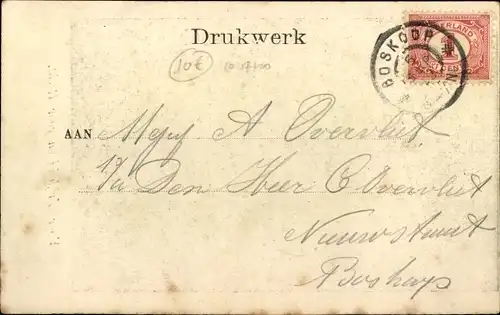 Drukwerk
BOSKOOP
NEDERLAND
10€
AAN Mejuf A Overvliet
p/a Den Heer C Overvliet
Nieuwstraat
Boskoop